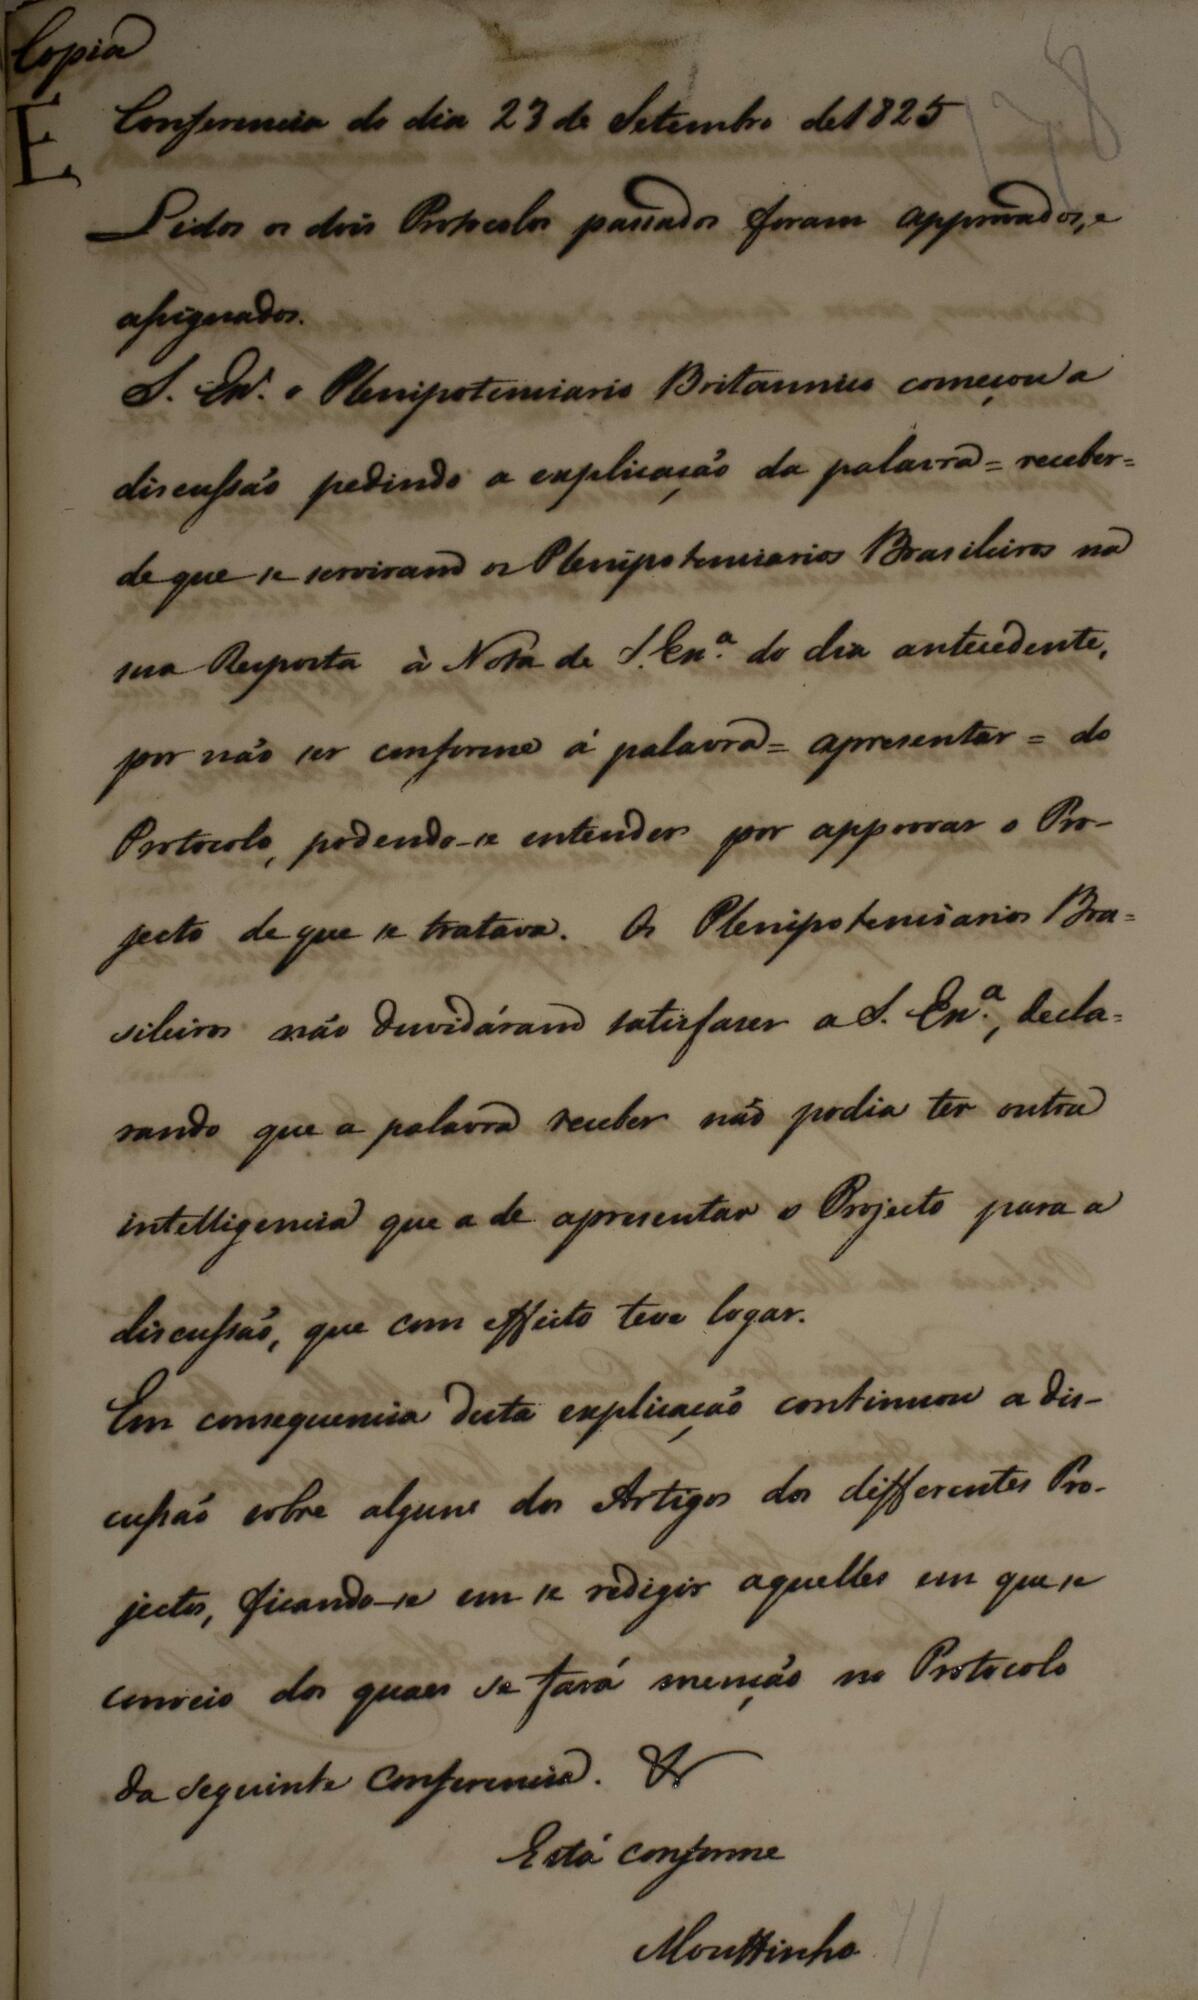 Copia
E
178
Conferencia do dia 23 de Setembro de 1825
Lidos os dois Protocolos passados foram approvados, e
assignados.
S. Exª. o Plenipotenciario Britannico começou a
discussão pedindo a explicação da palavra = receber =
de que se serviram os Plenipotenciarios Brasileiros na
sua Resposta à Nota de S. Exª. do dia antecedente,
por não ser conforme á palavra = apresentar = do
Protocolo, podendo-se entender por approvar o Pro-
jecto de que se tratava. Os Plenipotenciarios Bra=
sileiros não duvidáram satisfazer a S. Exª., decla=
rando que a palavra receber não podia ter outra
intelligencia que a de apresentar o Projecto para a
discussão, que com effeito teve logar.
Em consequencia desta explicação continuou a dis-
cussão sobre alguns dos Artigos dos differentes Pro-
jectos, ficando-se em se redigir aquelles em que se
conveio dos quaes se fará menção no Protocolo
da seguinte Conferencia. &
Está conforme
Mouttinho
71